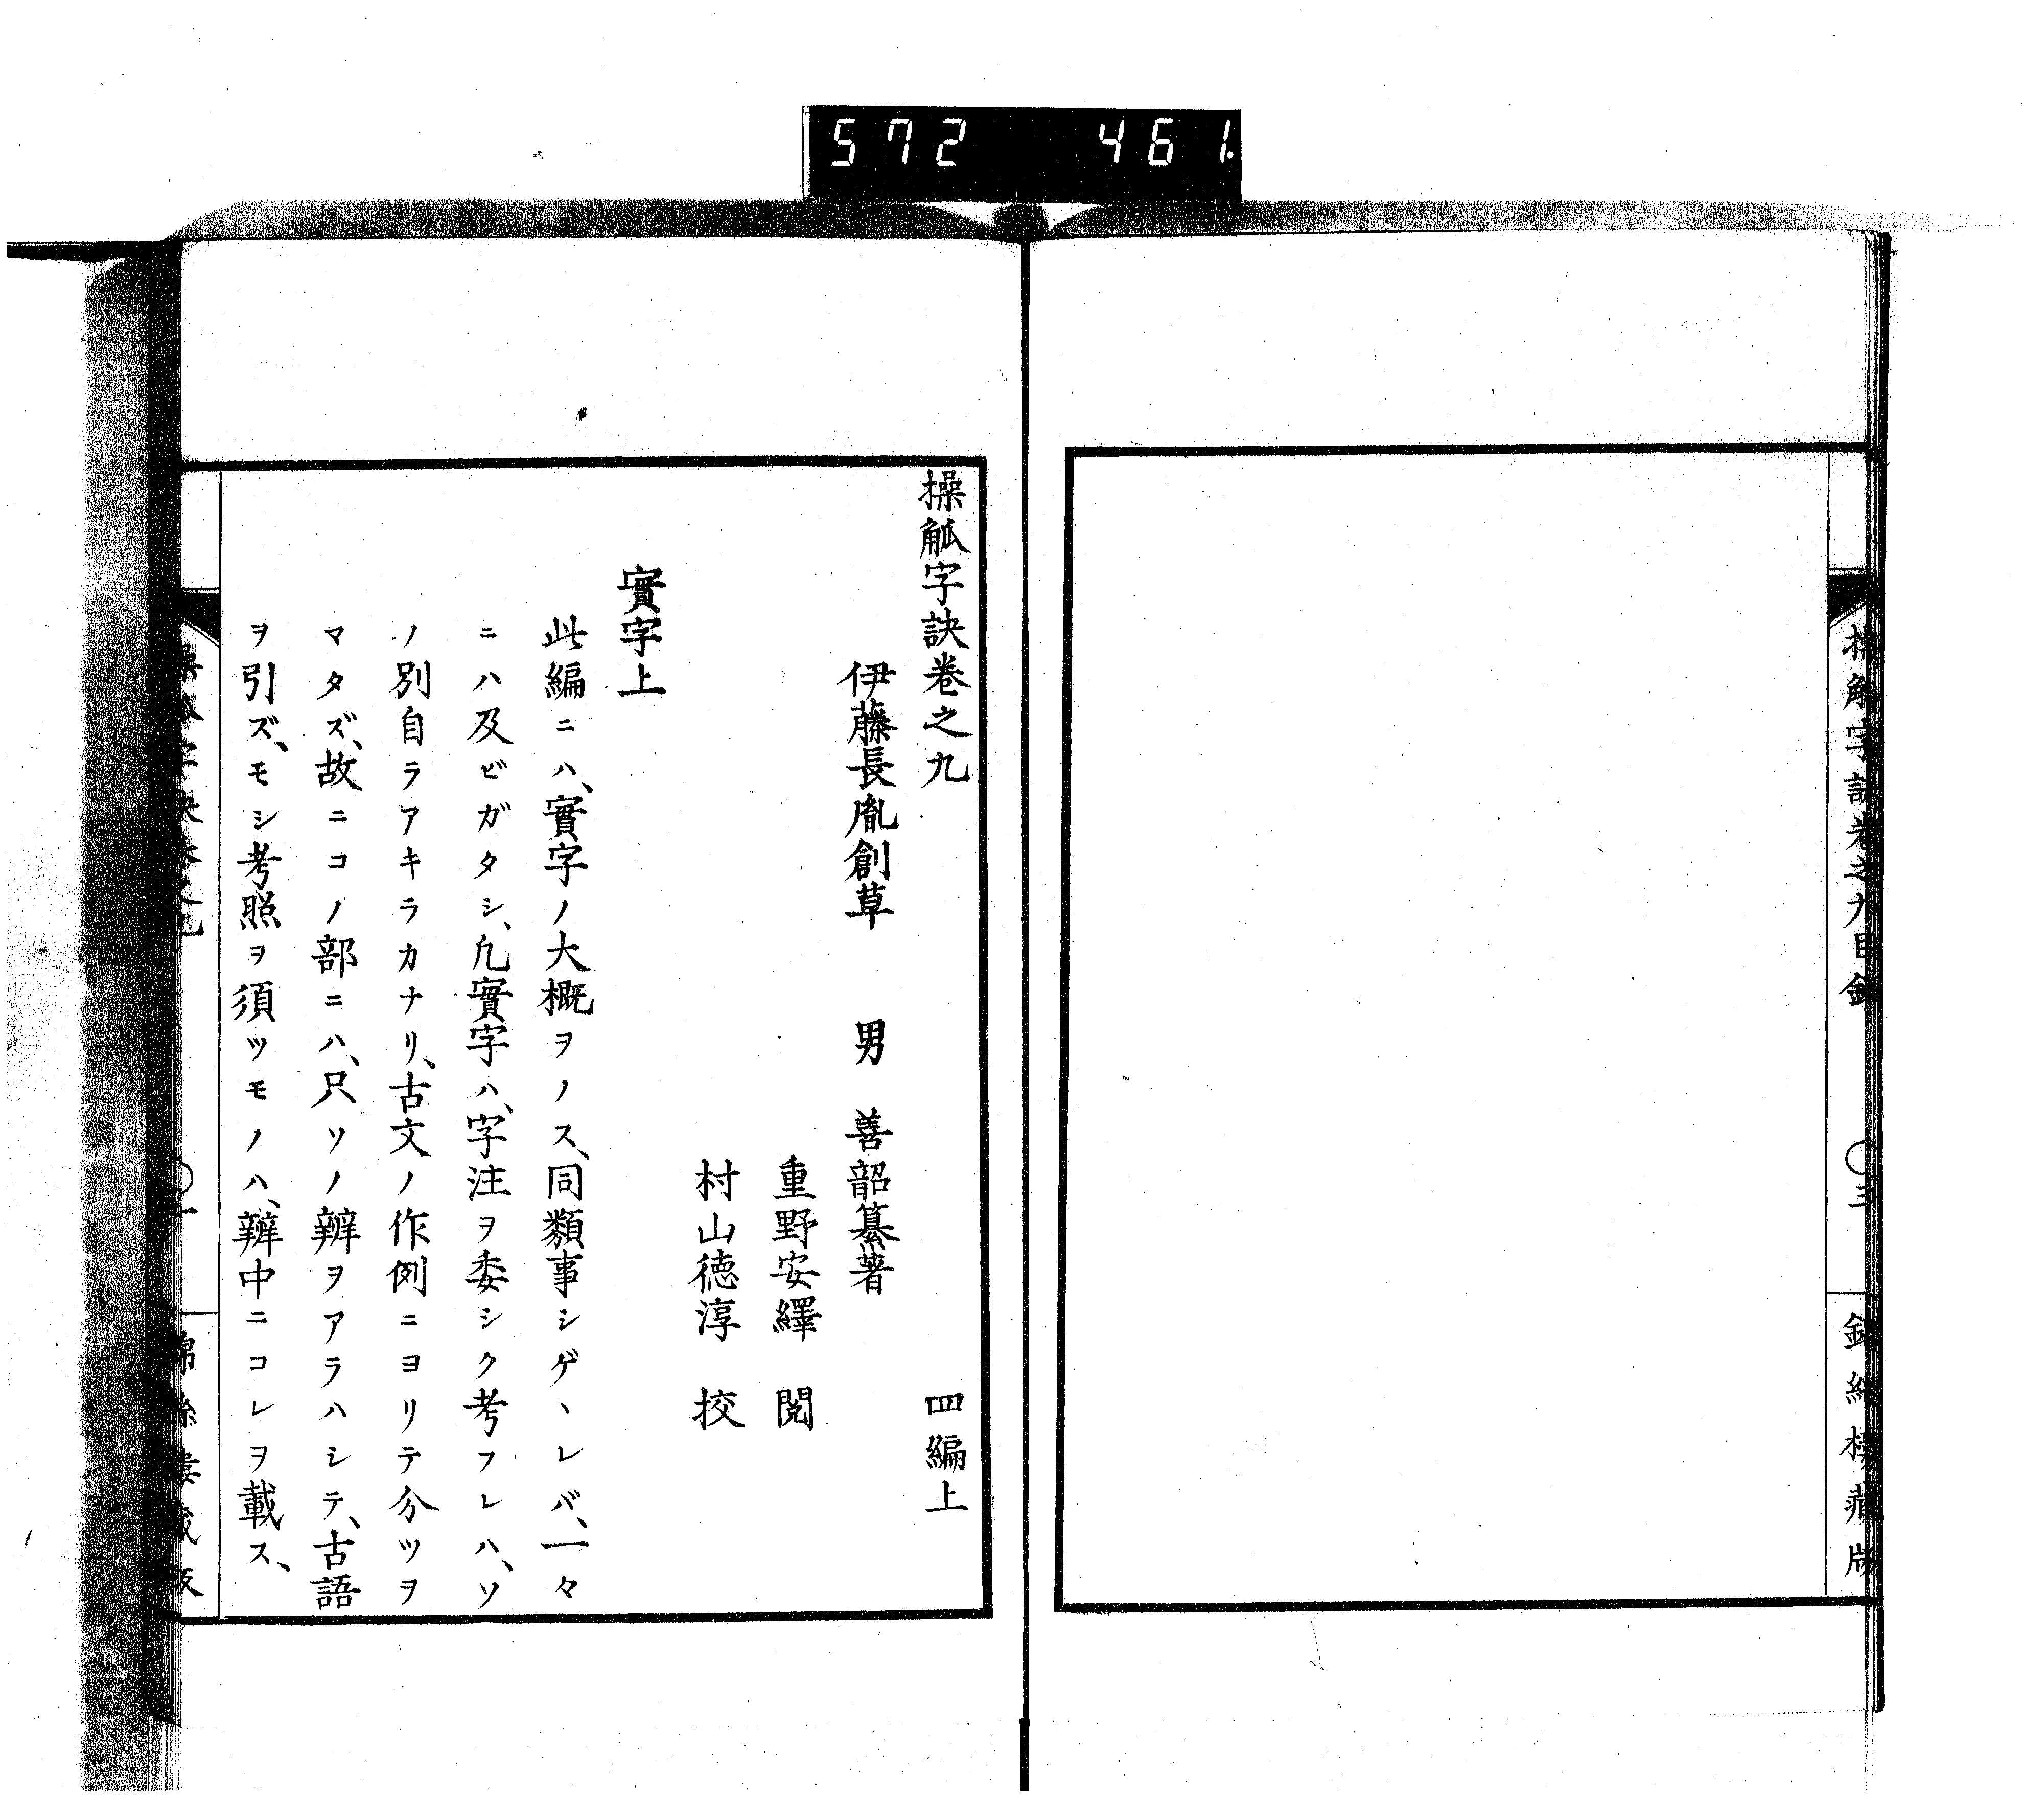 572 461
操觚字訣卷之九目錄
〇三
錦絲樓藏版
操觚字訣卷之九　四編上
伊藤長胤創草　男　善韶纂著
重野安繹　閲
村山徳淳　挍
實字上
此編ニハ、實字ノ大概ヲノス、同類事シゲヽレバ、一々
ニハ及ビガタシ、凢實字ハ、字注ヲ委シク考フレハ、ソ
ノ別自ラアキラカナリ、古文ノ作例ニヨリテ分ツヲ
マタズ、故ニコノ部ニハ、只ソノ辨ヲアラハシテ、古語
ヲ引ズ、モシ考照ヲ須ツモノハ、辨中ニコレヲ載ス、